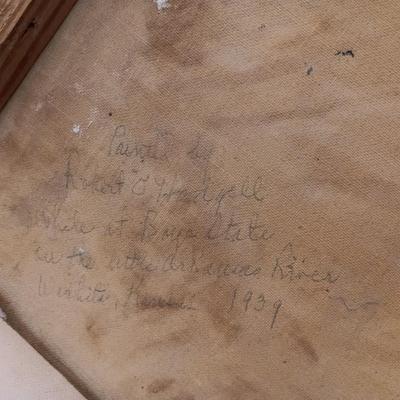 Painted by
Robert E Hodgell
While at Boys State
on the little Arkansas River
Wichita, Kansas 1939